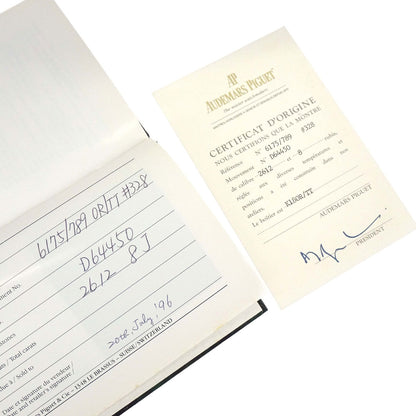 6175/789 OR/TT #328
D64450
2612 8 J
20th, July, '96
Date et signature du vendeur /
Piguet & Cie – 1348 LE BRASSUS – SUISSE/SWITZERLAND
AP
AUDEMARS PIGUET
CERTIFICAT D'ORIGINE
NOUS CERTIFIONS QUE LA MONTRE
Référence N° 6175/789 #328
Mouvement N° D64450
de calibre 2612 et 8 rubis,
réglée aux diverses températures et
positions a été construite dans nos
ateliers.
Le boîtier est
AUDEMARS PIGUET
PRESIDENT